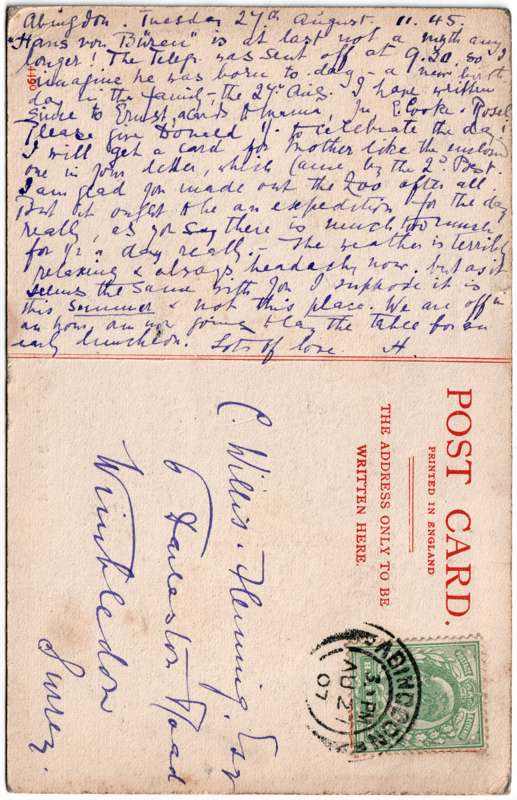 Abingdon. Tuesday 27th August. 11.45.
"Hans von Büren" is at last not a myth any
longer! The telegr. was sent off at 9.20. so I
imagine he was born to-day - a new birth
day in the family - the 27th Aug. I have written
since to Ernst, a card to Mamma,
Please give Donald 1/- to celebrate the day!
I will get a card for Mother like the enclosed
one in your letter, which came by the 2d Post
I am glad you made out the Zoo after all.
But it ought to be an expedition for the day
really, as you say there is much too much
for ½ a day really. - The weather is terribly
relaxing & always headachy now. but as it
seems the same with you I suppose it is
this summer & not this place. We are off in
an hour am now going to lay the table for an
early luncheon. Lots of love. H.
4490
POST CARD.
PRINTED IN ENGLAND
THE ADDRESS ONLY TO BE
WRITTEN HERE.
C. Willis. Fleming. Esq
6 Road
Wimbledon
Surrey.
ABINGDON
PM
AU 27
07